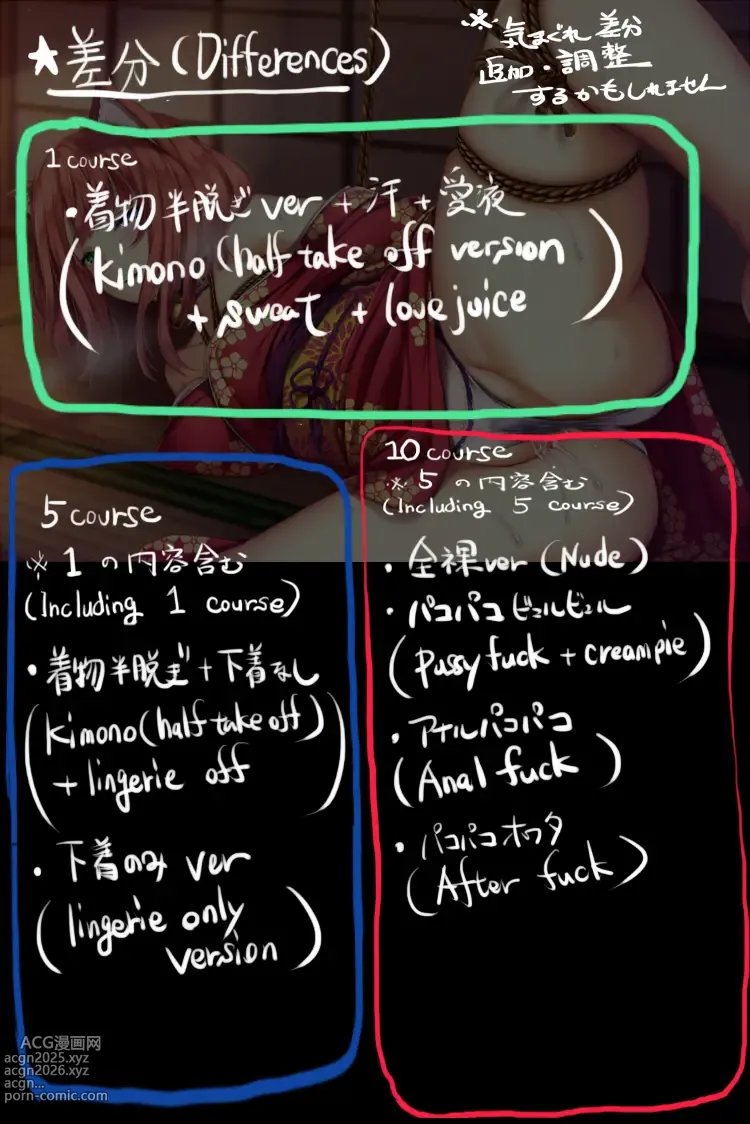 ★差分(Differences)
※気まぐれ差分
追加・調整
するかもしれません
1 course
・着物半脱ぎver + 汗 + 愛液
(kimono (half take off version
+ sweat + love juice)
5 course
※ 1 の内容含む
(Including 1 course)
・着物半脱ぎ + 下着なし
(kimono(half take off)
+ lingerie off)
・下着のみ ver
(lingerie only
version)
10 course
※ 5 の内容含む
(Including 5 course)
・全裸ver (Nude)
・パコパコビュルビュル
(Pussy fuck + creampie)
・アナルパコパコ
(Anal fuck)
・パコパコオワタ
(After fuck)
ACG漫画网
acgn2025.xyz
acgn2026.xyz
acgn...
porn-comic.com